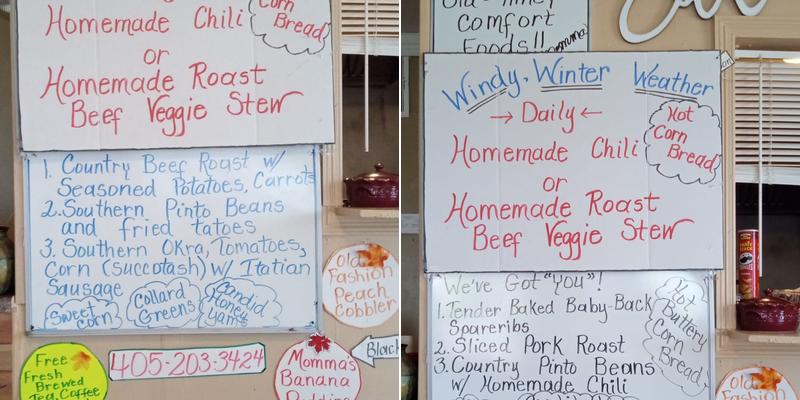 Corn
Bread
Homemade Chili
or
Homemade Roast
Beef Veggie Stew
1. Country Beef Roast w/
Seasoned Potatoes, Carrots
2. Southern Pinto Beans
and fried tatoes
3. Southern Okra, Tomatoes,
Corn (succotash) w/ Itatian
Sausage
Sweet
Corn
Collard
Greens
Candid
Honey
Yams
Old
Fashion
Peach
Cobbler
Free
Fresh
Brewed
Tea, Coffee
405-203-3424
Momma's
Banana
Pudding
Black
Comfort
Foods!!
Windy, Winter Weather
→ Daily ←
Homemade Chili
or
Homemade Roast
Beef Veggie Stew
Hot
Corn
Bread
We've Got "You"!
1. Tender Baked Baby-Back
Spareribs
2. Sliced Pork Roast
3. Country Pinto Beans
w/ Homemade Chili
Hot
Buttery
Corn
Bread
Old
Fashion